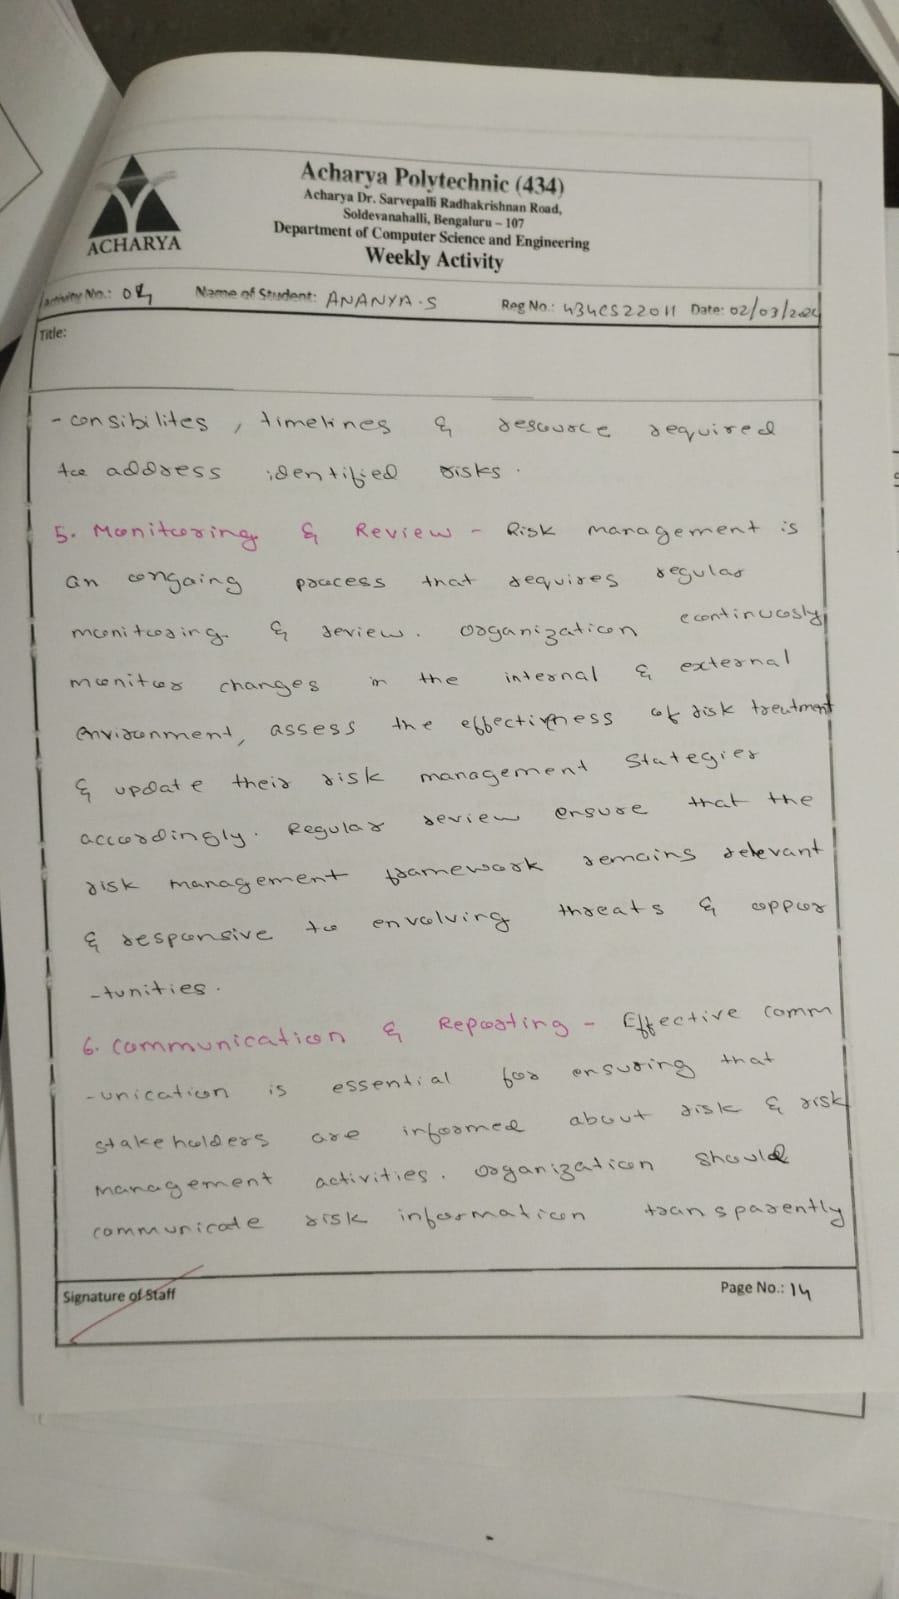 Acharya Polytechnic (434)
Acharya Dr. Sarvepalli Radhakrishnan Road,
Soldevanahalli, Bengaluru – 107
Department of Computer Science and Engineering
Weekly Activity
ACHARYA
Activity No.: 04 Name of Student: ANANYA.S Reg No.: 434CS22011 Date: 02/03/2024
Title:
-onsibilites, timelines & resource required
to address identified risks.
5. Monitoring & Review - Risk management is
an ongoing process that requires regular
monitoring & review. Organization continuosly
monitor changes in the internal & external
environment, assess the effectivness of risk treatment
& update their risk management Stategies
accordingly. Regular review ensure that the
risk management framework remains relevant
& responsive to envolving threats & oppor
-tunities.
6. Communication & Reporting - Effective comm
-unication is essential for ensuring that
stakeholders are informed about risk & risk
management activities. Organization should
communicate risk information transparently
Signature of Staff Page No.: 14